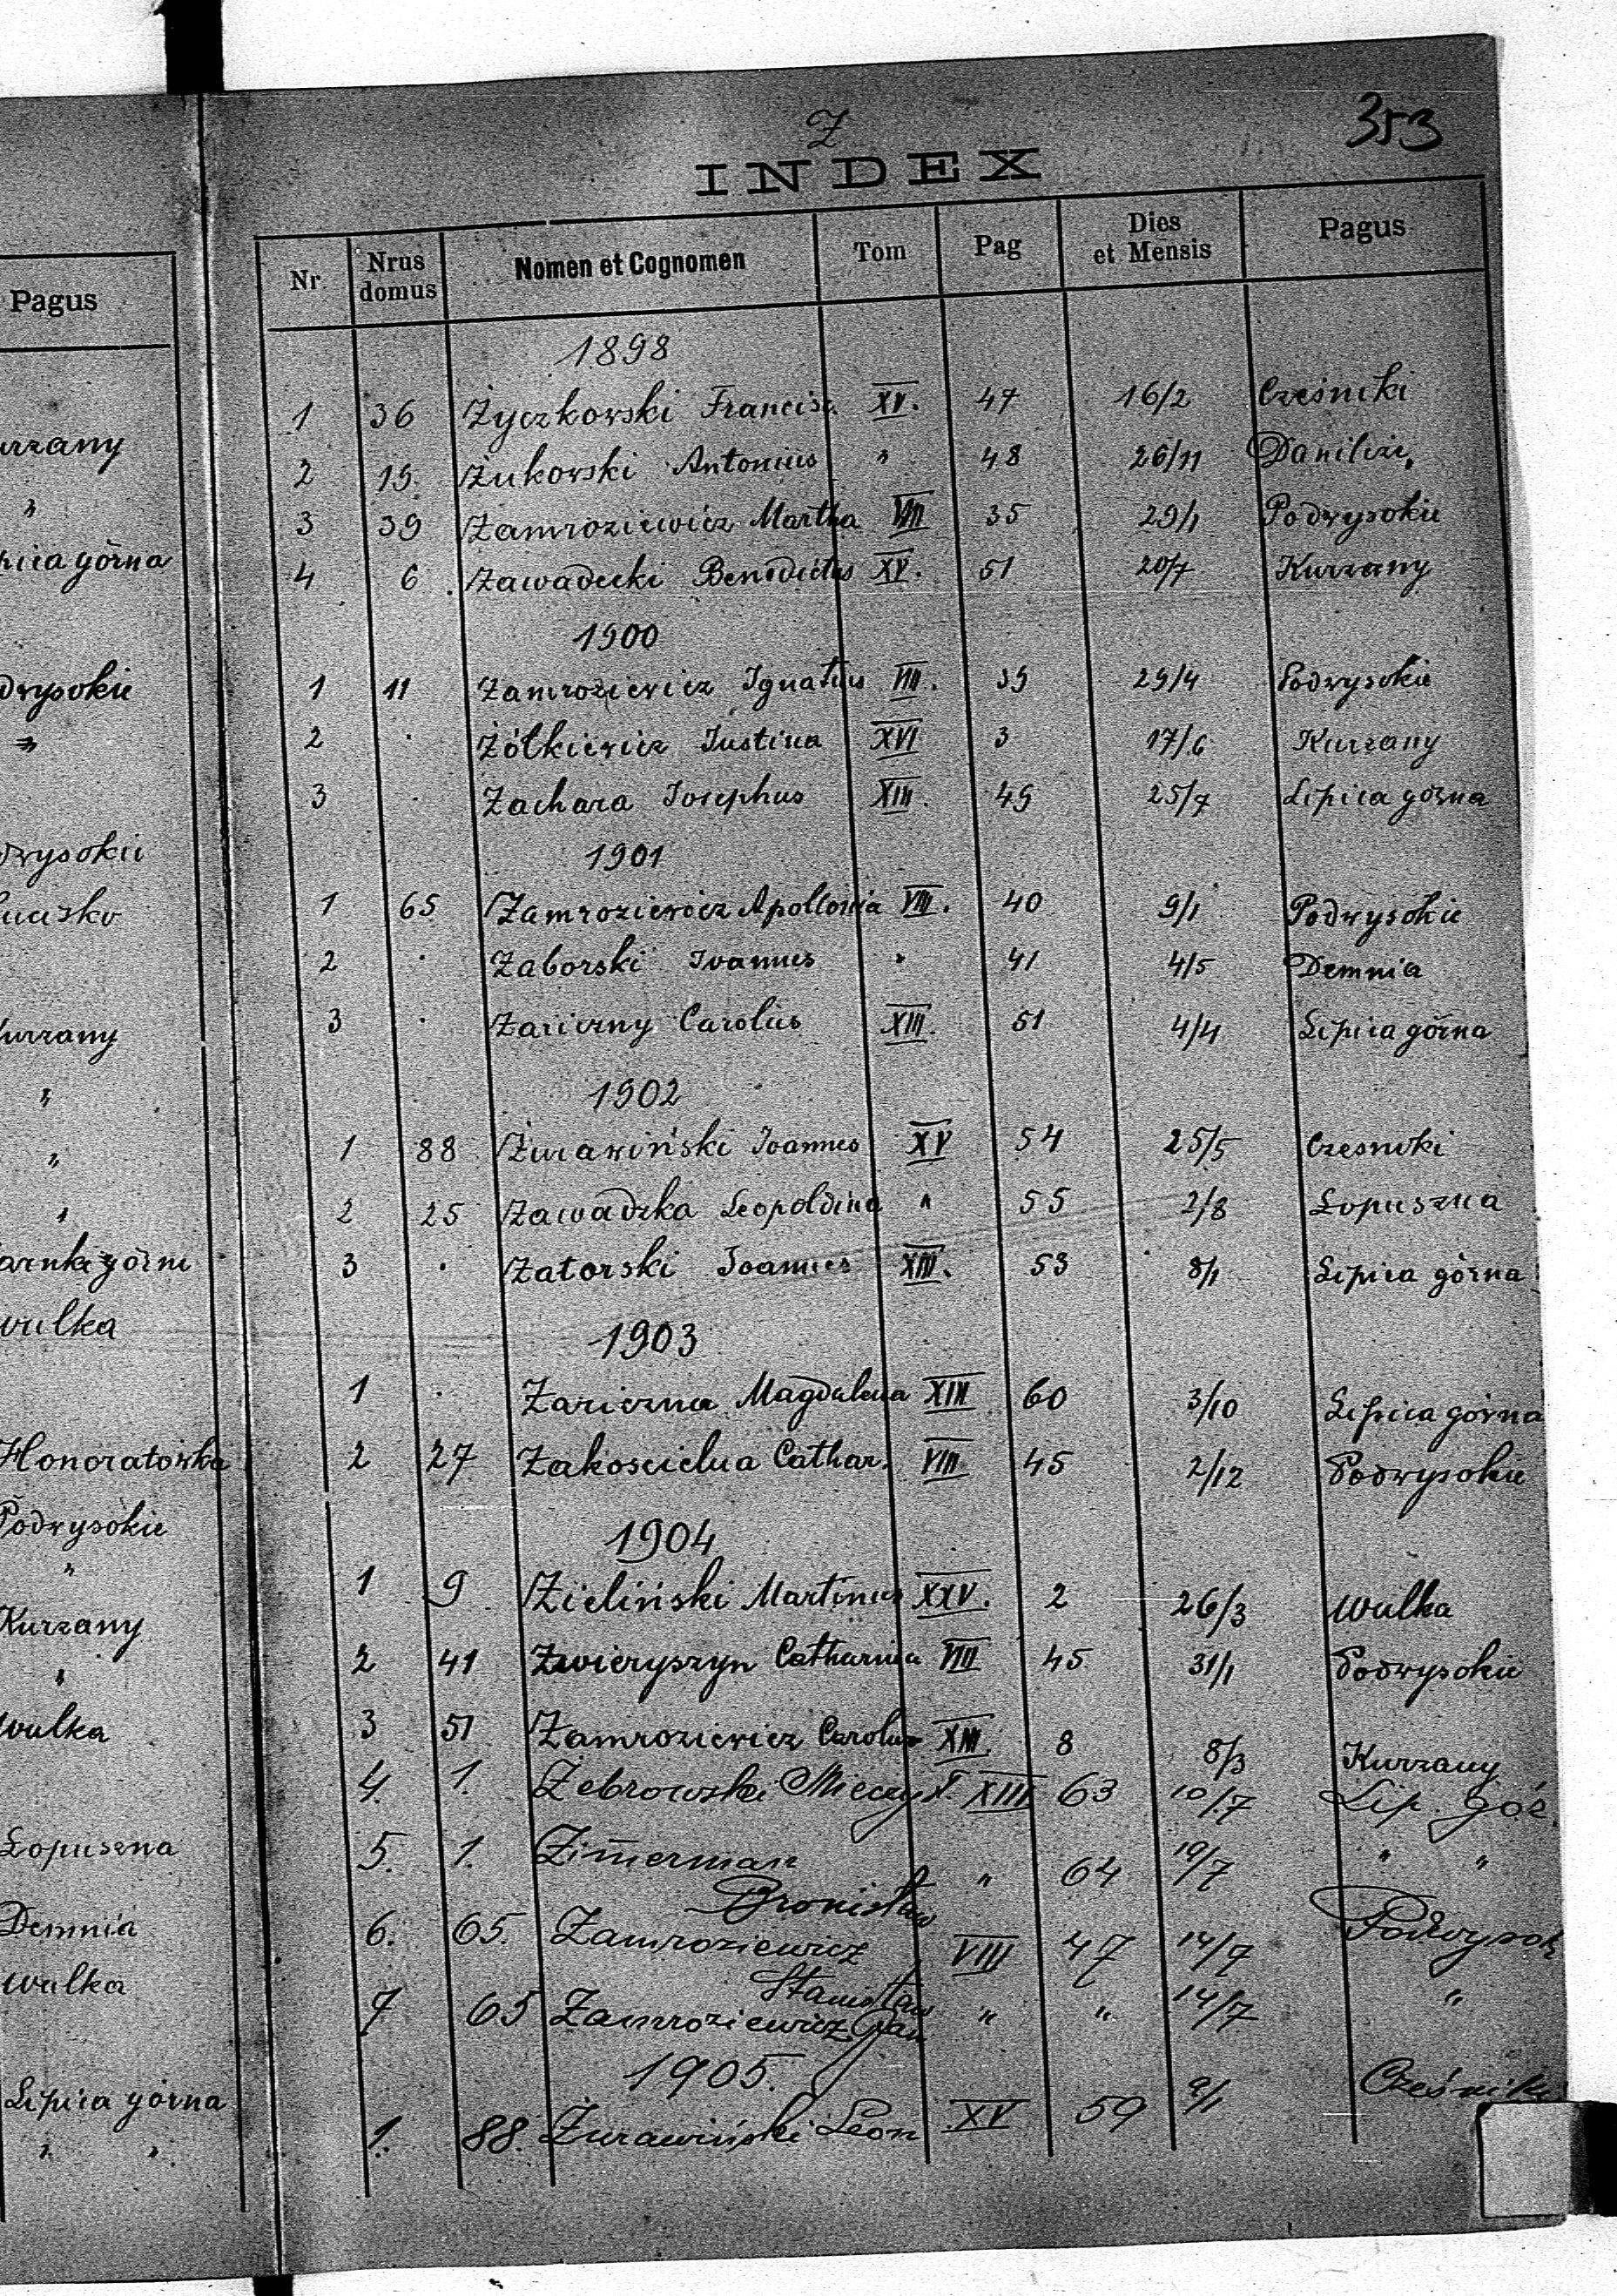 Pagus
urzany
"
pica górna
drysokie
"
drysokie
Kurzany
"
"
"
wulka
Honoratówka
Podwysokie
"
Kurzany
"
Wulka
Łopuszna
Demnia
Wulka
Lipica górna
" "
Z
353
INDEX
Nr. Nrus domus Nomen et Cognomen Tom Pag Dies et Mensis Pagus
1898
1 36 Życzkowski Francisc. XV. 47 16/2 Cześniki
2 19. Żukowski Antonius " 48 26/11
3 39 Zamroziewicz Martha VIII 35 29/1 Podwysokie
4 6 Zawadecki Benedictus XV. 51 20/7 Kurzany
1900
1 11 Zamroziewicz Ignatius VIII. 39 29/4 Podwysokie
2 . Żółkiewicz Justina XVI 3 17/6 Kurzany
3 . Zachara Josephus XIII. 49 25/7 Lipica górna
1901
1 65 Zamroziewicz Apollonia VIII. 40 9/1 Podwysokie
2 . Zaborski Joannes " 41 4/5 Demnia
3 . Zariczny Carolus XIII. 51 4/4 Lipica górna
1902
1 88 Żurawiński Joannes XV 54 25/5 Czesniki
2 25 Zawadzka Leopoldina " 55 2/8 Łopuszna
3 . Zatorski Joannes XIII. 53 8/1 Lipica górna
1903
1 . Zariczna Magdalena XIII 60 3/10 Lipica górna
2 27 Zakoscielna Cathar. VIII 45 2/12 Podwysokie
1904
1 9 Zieliński Martinus XXV. 2 26/3 Wulka
2 41 Zwieryszyn Catharina VIII 45 31/1 Podwysokie
3 51 Zamroziewicz Carolus 8 8/3 Kurzany
4. 1. Żebrowski Mieczy XIII 63 10/7 Lip. Gór.
5. 1. Zim̅erman Bronisław " 64 19/7 " "
6. 65. Zamroziewicz Stanisław VIII 47 14/7 Podwysok
7 65 Zamroziewicz Jan " " 14/7 "
1905.
1. 88. Żurawiński Leon XV 59 9/1 Cześniki